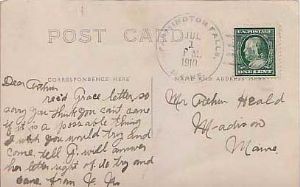 POST CARD
FARMINGTON FALLS,
JUL
1
P.M.
1910
U.S. POSTAGE
ONE CENT
CORRESPONDENCE HERE
Dear Arthur
rec'd Grace letter so
sorry you think you cant come
if it is a possable thing
I wish you would try and
come, tell G. will answer
her letter right of do try and
come from
Mr Arthur Heald
Madison
Maine